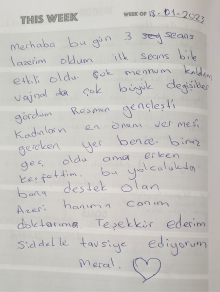 THIS WEEK
WEEK OF 13-01-2023
merhaba bu gün 3 seans
lazerim oldum ilk seans bile
etkili oldu çok memnum kaldım
vajnal da çok büyük değişikler
gördüm Resmen gençleşti
Kadınların en önem vermesi
gereken yer bence biraz
geç oldu ama erken
keşfettim. bu yolculukta
bana destek olan
Azeri hanıma canım
doktoruma Teşekkür ederim
şiddetle tavsiye ediyorum
Meral.